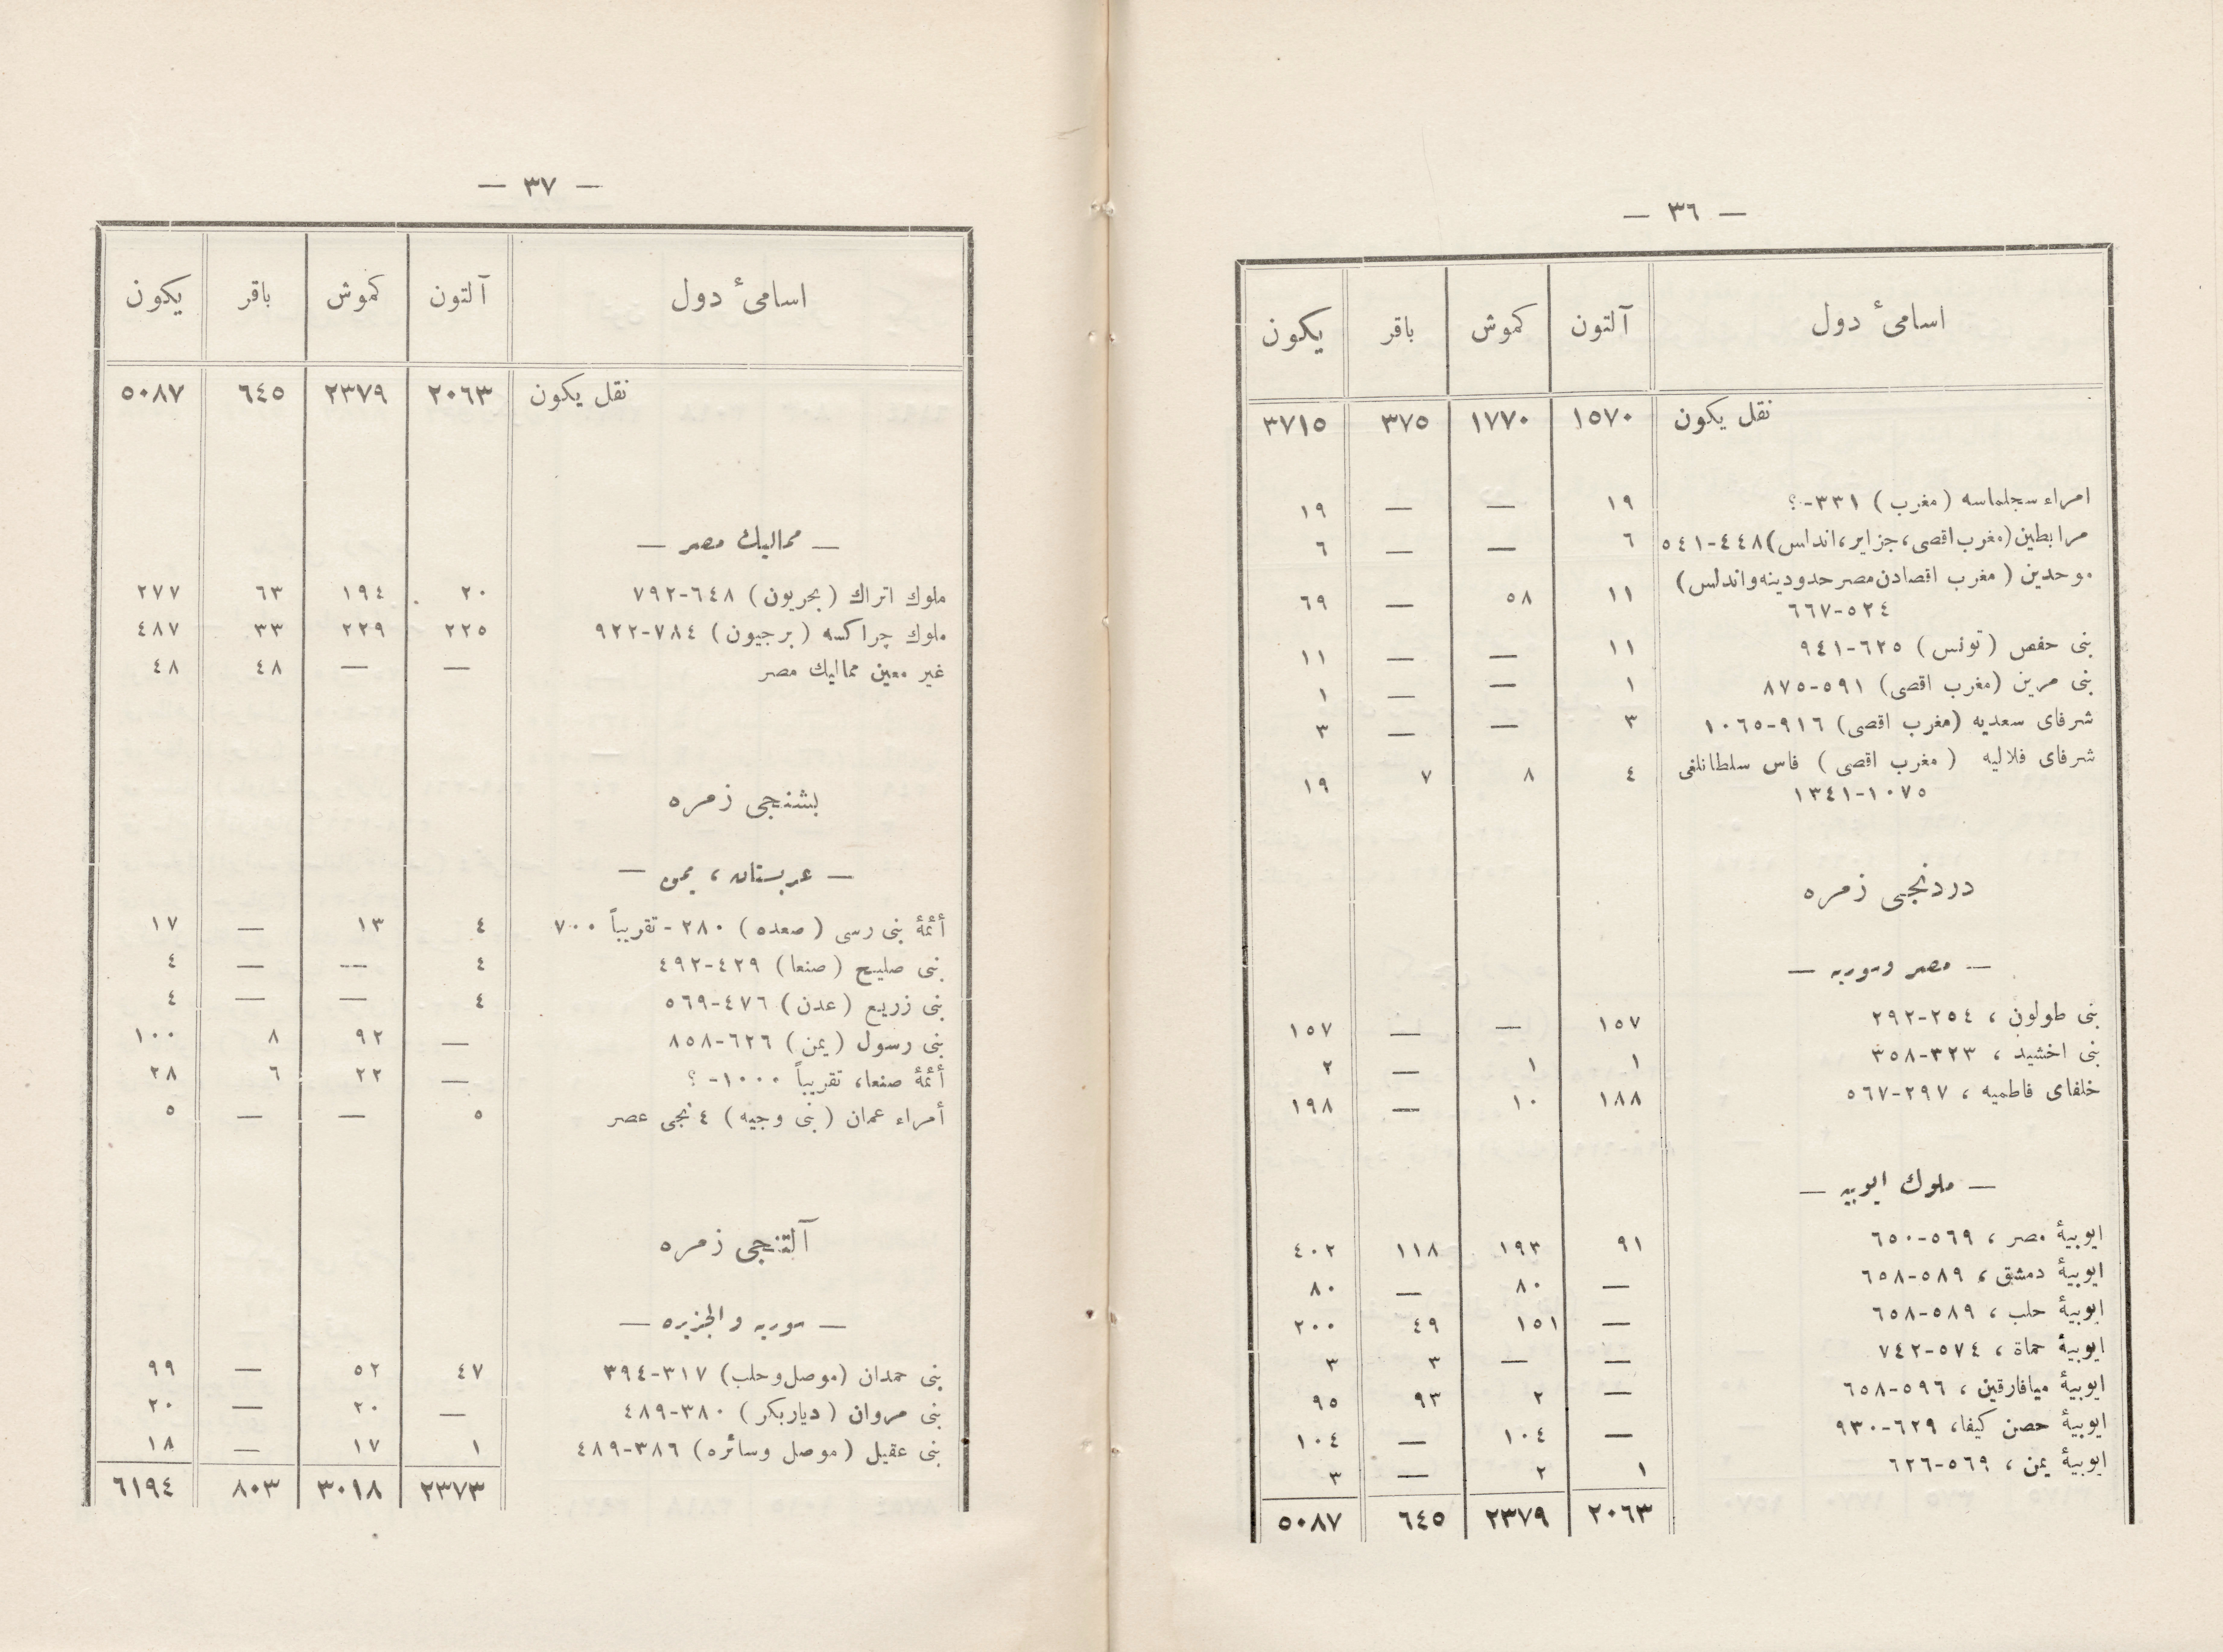 — ٣٦ —
اسامیٔ دول آلتون کموش باقر یکون
نقل یکون ١٥٧٠ ١٧٧٠ ٣٧٥ ٣٧١٥
امراء سجلماسه (مغرب) ٣٣١-؟ ١٩ — — ١٩
مرابطین (مغرب اقصی، جزایر، اندلس) ٤٤٨-٥٤١ ٦ — — ٦
موحدین (مغرب اقصادن مصر حدودینه و اندلس)
٥٢٤-٦٦٧ ١١ ٥٨ — ٦٩
بنی حفص (تونس) ٦٢٥-٩٤١ ١١ — — ١١
بنی مرین (مغرب اقصی) ٥٩١-٨٧٥ ١ — — ١
شرفای سعدیه (مغرب اقصی) ٩١٦-١٠٦٥ ٣ — — ٣
شرفای فلالیه (مغرب اقصی) فاس سلطانلغی
١٠٧٥-١٣٤١ ٤ ٨ ٧ ١٩
دردنجی زمره
— مصر وسوریه —
بنی طولون ، ٢٥٤-٢٩٢ ١٥٧ — — ١٥٧
بنی اخشید ، ٣٢٣-٣٥٨ ١ ١ — ٢
خلفای فاطمیه ، ٢٩٧-٥٦٧ ١٨٨ ١٠ — ١٩٨
— ملوك ایوبیه —
ایوبیهٔ مصر ، ٥٦٩-٦٥٠ ٩١ ١٩٣ ١١٨ ٤٠٢
ایوبیهٔ دمشق ، ٥٨٩-٦٥٨ — ٨٠ — ٨٠
ایوبیهٔ حلب ، ٥٨٩-٦٥٨ — ١٥١ ٤٩ ٢٠٠
ایوبیهٔ حماة ، ٥٧٤-٧٤٢ — — ٣ ٣
ایوبیهٔ میافارقین ، ٥٩٦-٦٥٨ — ٢ ٩٣ ٩٥
ایوبیهٔ حصن کیفا، ٦٢٩-٩٣٠ — ١٠٤ — ١٠٤
ایوبیهٔ یمن ، ٥٦٩-٦٢٦ ١ ٢ — ٣
٢٠٦٣ ٢٣٧٩ ٦٤٥ ٥٠٨٧
— ٣٧ —
اسامیٔ دول آلتون کموش باقر یکون
نقل یکون ٢٠٦٣ ٢٣٧٩ ٦٤٥ ٥٠٨٧
— ممالیك مصر —
ملوك اتراك (بحریون) ٦٤٨-٧٩٢ ٢٠ ١٩٤ ٦٣ ٢٧٧
ملوك چراکسه (برجیون) ٧٨٤-٩٢٢ ٢٢٥ ٢٢٩ ٣٣ ٤٨٧
غیر معین ممالیك مصر — — ٤٨ ٤٨
بشنجی زمره
— عربستان ، یمن —
أئمهٔ بنی رسی (صعده) ٢٨٠ - تقریباً ٧٠٠ ٤ ١٣ — ١٧
بنی صلیح (صنعا) ٤٢٩-٤٩٢ ٤ — — ٤
بنی زریع (عدن) ٤٧٦-٥٦٩ ٤ — — ٤
بنی رسول (یمن) ٦٢٦-٨٥٨ — ٩٢ ٨ ١٠٠
أئمهٔ صنعا، تقریباً ١٠٠٠-؟ — ٢٢ ٦ ٢٨
أمراء عمان (بنی وجیه) ٤ نجی عصر ٥ — — ٥
آلتنجی زمره
— سوریه والجزیره —
بنی حمدان (موصل وحلب) ٣١٧-٣٩٤ ٤٧ ٥٢ — ٩٩
بنی مروان (دیاربکر) ٣٨٠-٤٨٩ — ٢٠ — ٢٠
بنی عقیل (موصل وسائره) ٣٨٦-٤٨٩ ١ ١٧ — ١٨
٢٣٧٣ ٣٠١٨ ٨٠٣ ٦١٩٤